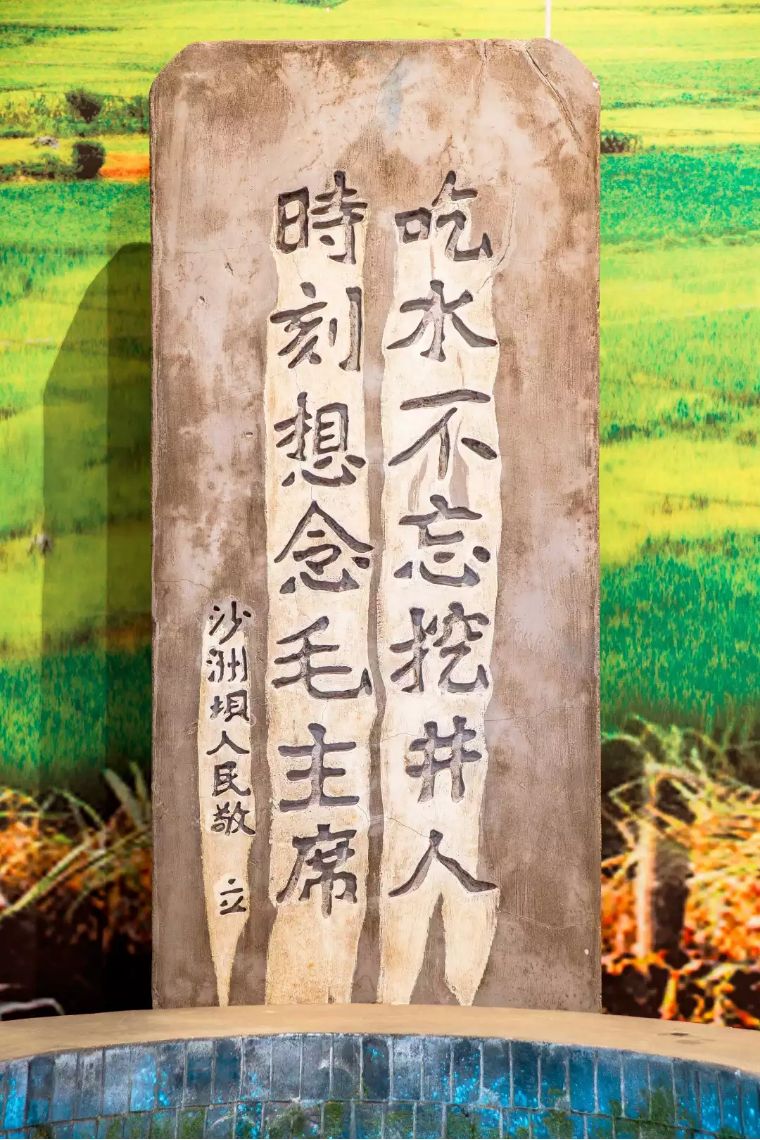 吃水不忘挖井人
時刻想念毛主席
沙洲埧人民敬立